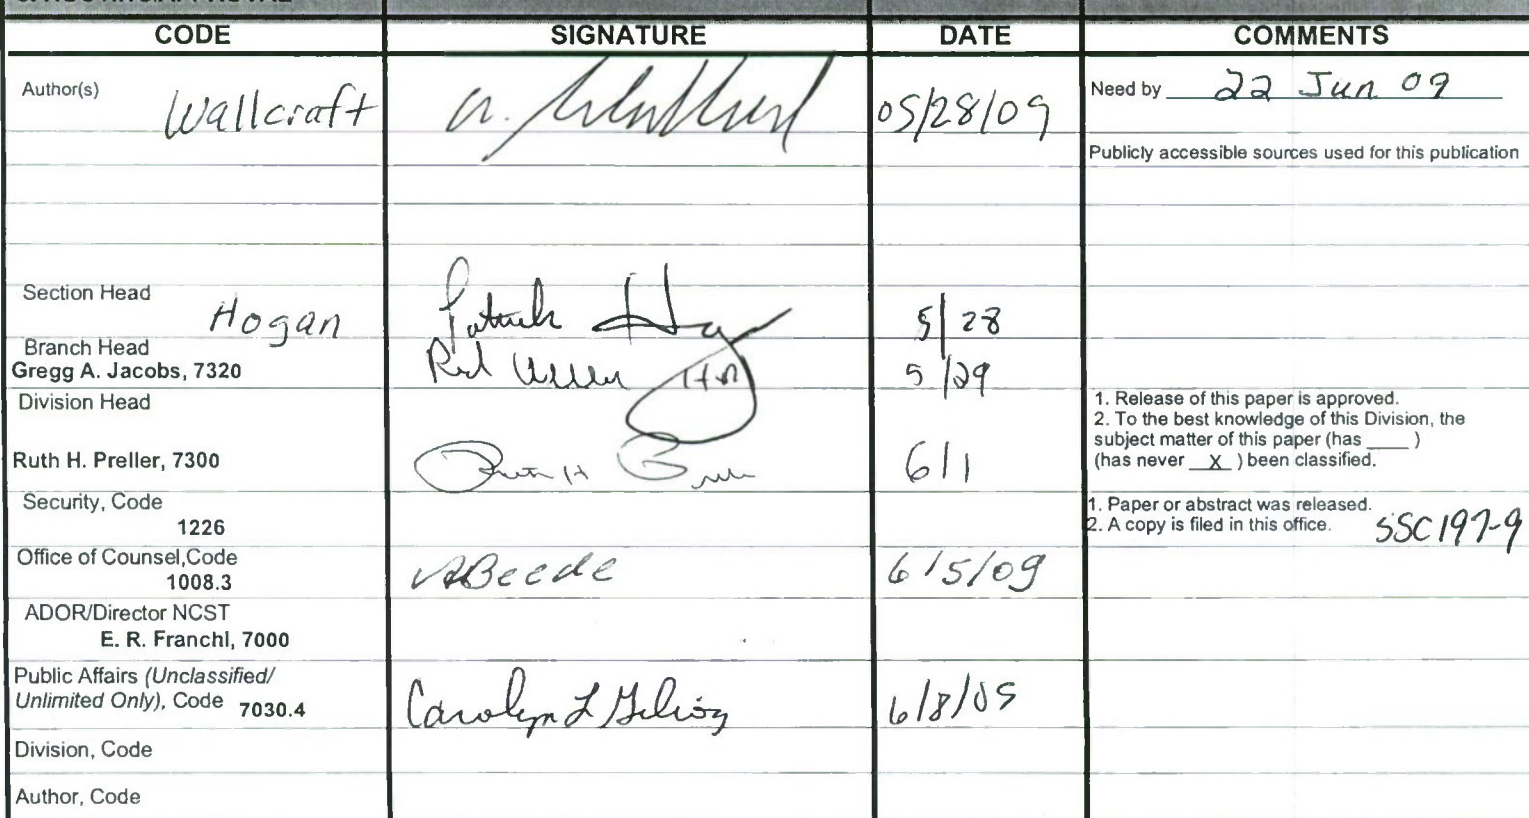 CODE SIGNATURE DATE COMMENTS
Author(s) Wallcraft 05/28/09 Need by 22 Jun 09
Publicly accessible sources used for this publication
Section Head
Hogan Patrick 5/28
Branch Head
Gregg A. Jacobs, 7320 5/29
Division Head
1. Release of this paper is approved.
2. To the best knowledge of this Division, the
subject matter of this paper (has ____ )
(has never X ) been classified.
Ruth H. Preller, 7300 Ruth H 6/1
Security, Code
1226
1. Paper or abstract was released.
2. A copy is filed in this office. SSC197-9
Office of Counsel,Code
1008.3 ABeede 6/5/09
ADOR/Director NCST
E. R. Franchi, 7000
Public Affairs (Unclassified/
Unlimited Only), Code 7030.4 Carolyn L 6/8/09
Division, Code
Author, Code